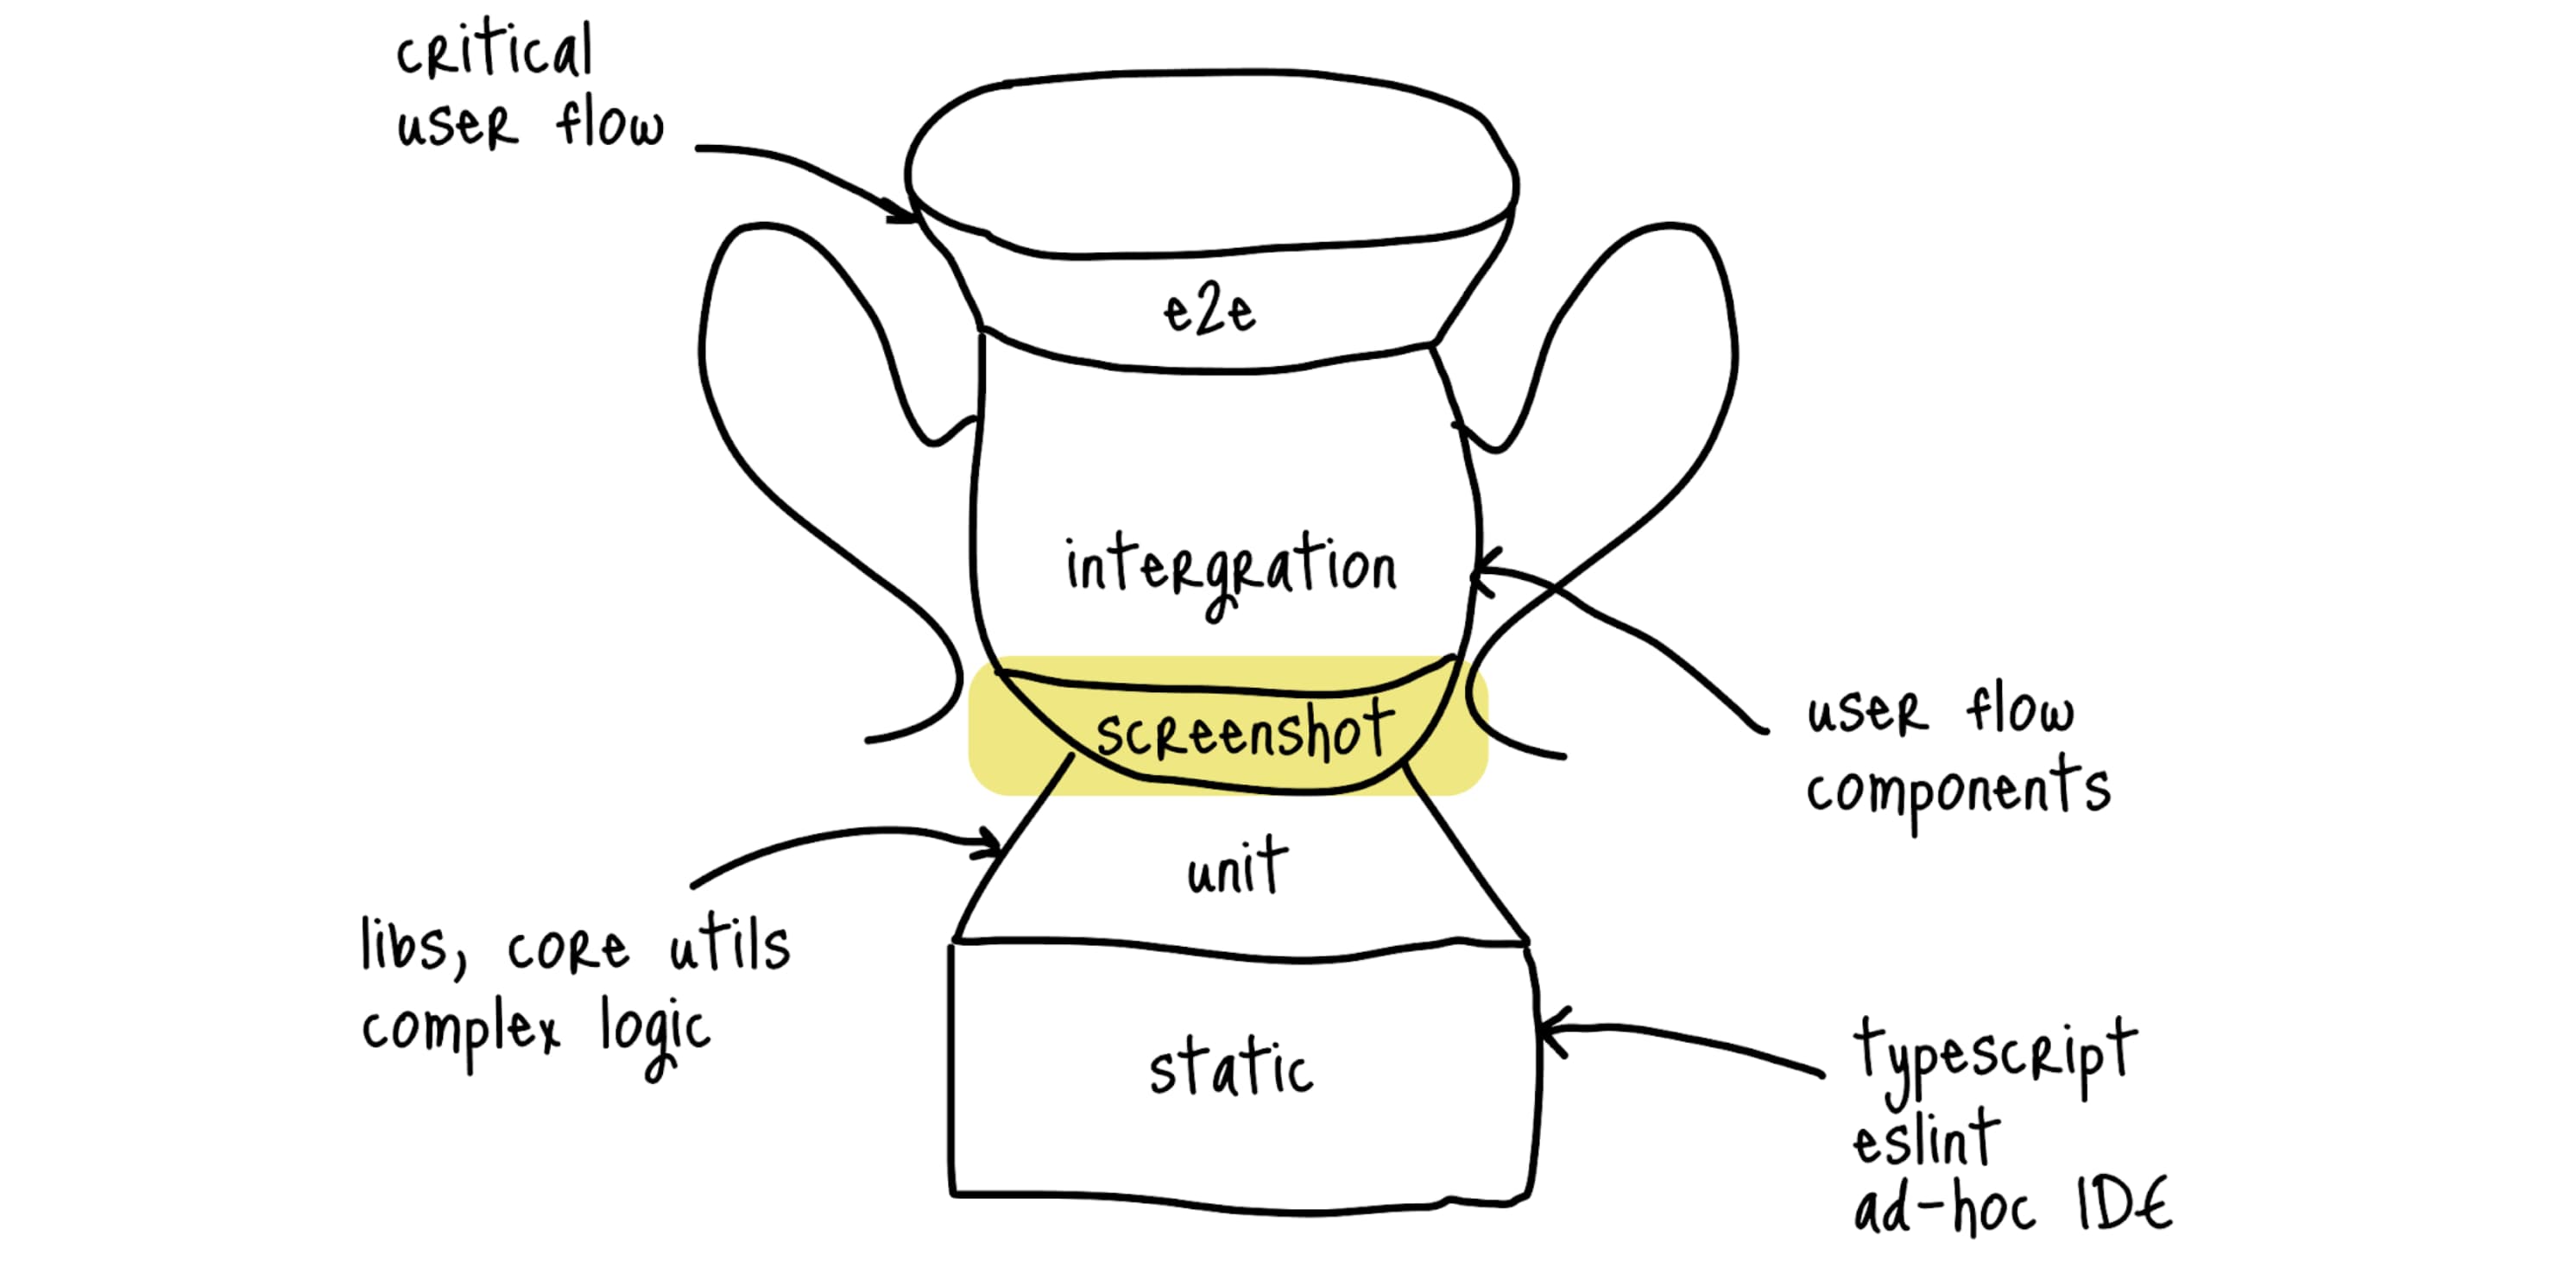 critical
user flow
e2e
intergration
screenshot
user flow
components
unit
libs, core utils
complex logic
static
typescript
eslint
ad-hoc IDE